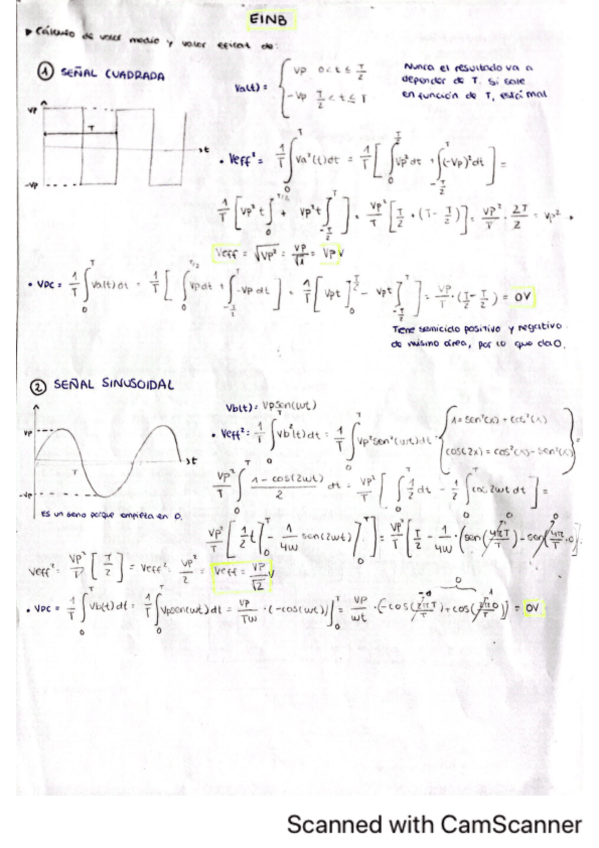 EINB
▶ Cálculo de valor medio y valor eficaz de:
① SEÑAL CUADRADA
Va(t) = { Vp 0<t≤ T/2
-Vp T/2<t≤T
Nunca el resultado va a
depender de T. Si sale
en función de T, está mal
Vp
T
t
-Vp
• Veff² = 1/T ∫₀ᵀ Va²(t)dt = 1/T [ ∫₀^(T/2) Vp² dt + ∫_(T/2)^T (-Vp)² dt ] =
1/T [ Vp² t ]₀^(T/2) + Vp² t ]_(T/2)^T ] = Vp²/T [ T/2 + (T - T/2) ] = Vp²/T · 2T/2 = Vp²
Veff = √Vp² = Vp/√1 = Vp V
• VDC = 1/T ∫₀ᵀ Va(t) dt = 1/T [ ∫₀^(T/2) Vp dt + ∫_(T/2)^T -Vp dt ] = 1/T [ Vpt ]₀^(T/2) - Vpt ]_(T/2)^T ] = Vp/T · (T/2 - T/2) = 0V
Tiene semiciclo positivo y negativo
de mismo área, por lo que da 0.
② SEÑAL SINUSOIDAL
Vb(t) = Vpsen(wt)
Vp
T
t
-Vp
• Veff² = 1/T ∫₀ᵀ Vb²(t) dt = 1/T ∫₀ᵀ Vp² sen²(wt) dt = { 1 = sen²(x) + cos²(x)
cos(2x) = cos²(x) - sen²(x) } =
Vp²/T ∫₀ᵀ (1 - cos(2wt))/2 dt = Vp²/T [ ∫₀ᵀ 1/2 dt - 1/2 ∫₀ᵀ cos 2wt dt ] =
Es un seno porque empieza en 0.
Vp²/T [ 1/2 t ]₀ᵀ - 1/4w sen(2wt) ]₀ᵀ ] = Vp²/T [ T/2 - 1/4w (sen(4π/T T) - sen(4π/T · 0) ]
Veff² = Vp²/T [ T/2 ] = Veff² = Vp²/2 = Veff = Vp/√2 V
• VDC = 1/T ∫₀ᵀ Vb(t) dt = 1/T ∫₀ᵀ Vpsen(wt) dt = Vp/Tw · (-cos(wt)) ]₀ᵀ = Vp/wt · (-cos(2π/T T) + cos(2π/T 0)) = 0V
Scanned with CamScanner